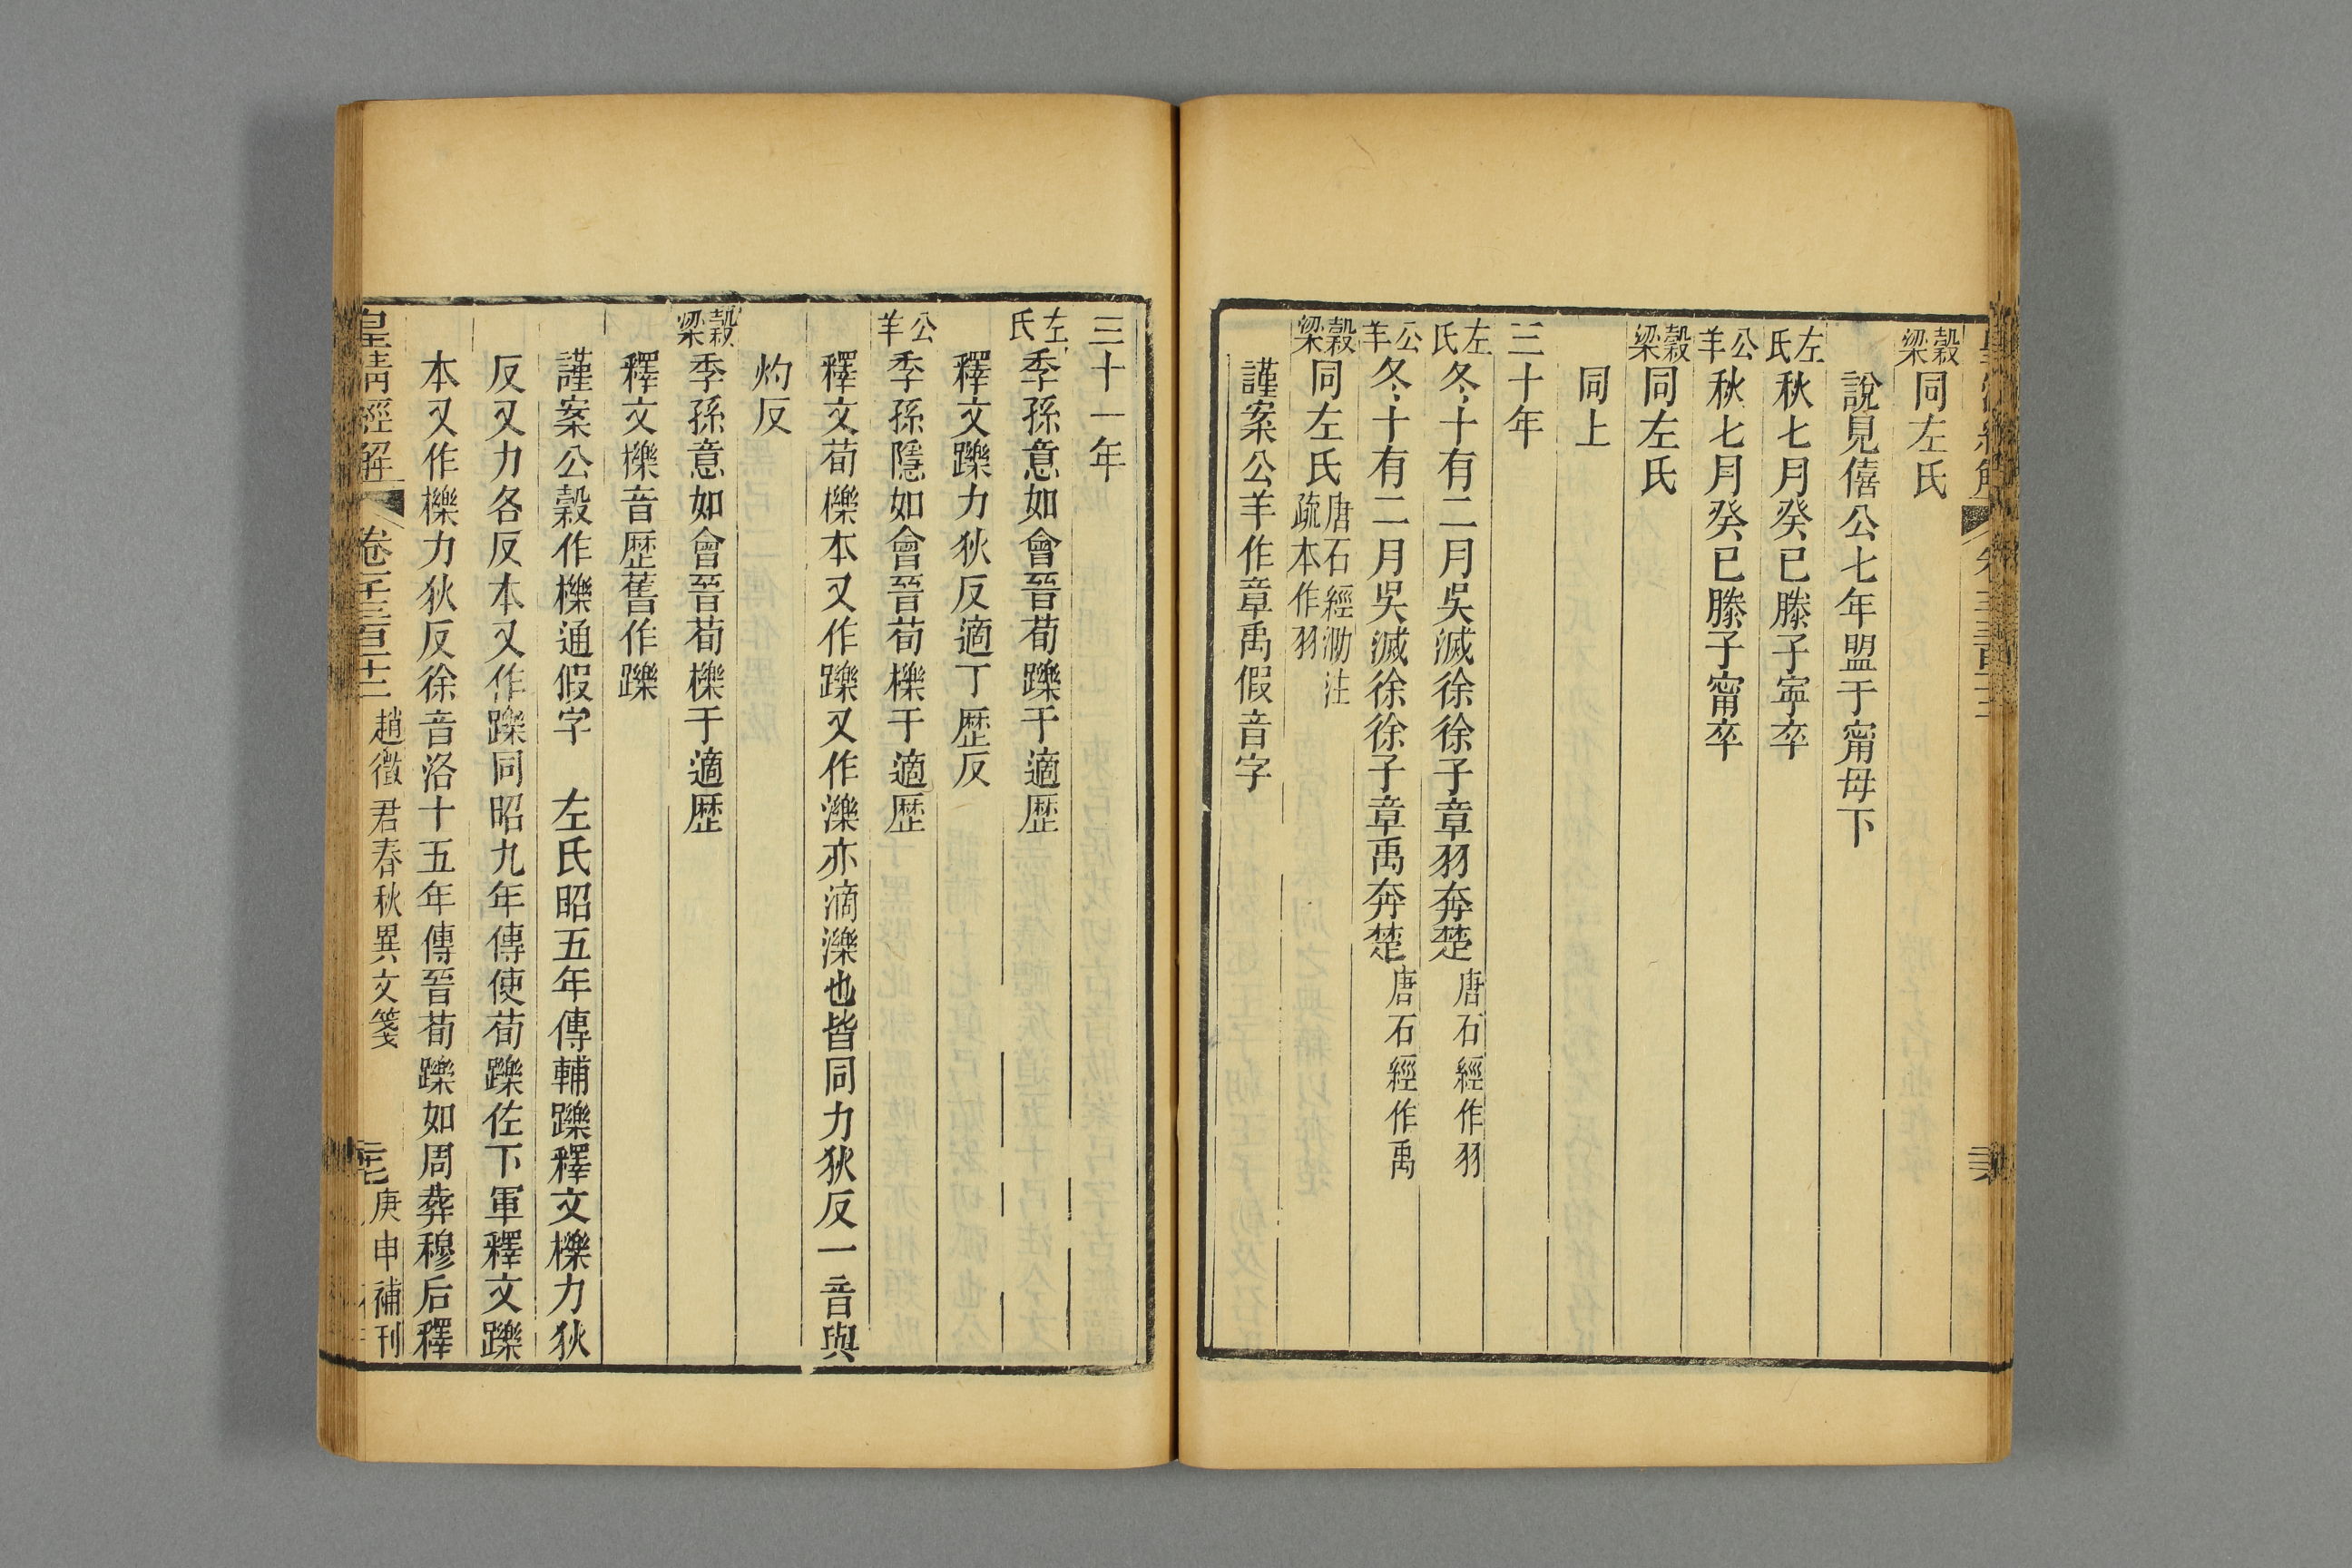 穀梁同左氏
說見僖公七年盟于甯母下
左氏秋七月癸巳滕子寧卒
公羊秋七月癸巳滕子甯卒
穀梁同左氏
同上
三十年
左氏冬十有二月吳滅徐徐子章羽奔楚唐石經作羽
公羊冬十有二月吳滅徐徐子章禹奔楚唐石經作禹
穀梁同左氏唐石經泐注疏本作羽
謹案公羊作章禹假音字
三十一年
左氏季孫意如會晉荀躒于適歷
釋文躒力狄反適丁歷反
公羊季孫隱如會晉荀櫟于適歷
釋文荀櫟本又作躒又作濼亦滴濼也皆同力狄反一音與
灼反
穀梁季孫意如會晉荀櫟于適歷
釋文櫟音歷舊作躒
謹案公穀作櫟通假字 左氏昭五年傳輔躒釋文櫟力狄
反又力各反本又作躒同昭九年傳使荀躒佐下軍釋文躒
本又作櫟力狄反徐音洛十五年傳晉荀躒如周葬穆后釋
皇清經解 卷 趙徵君春秋異文箋 庚申補刊